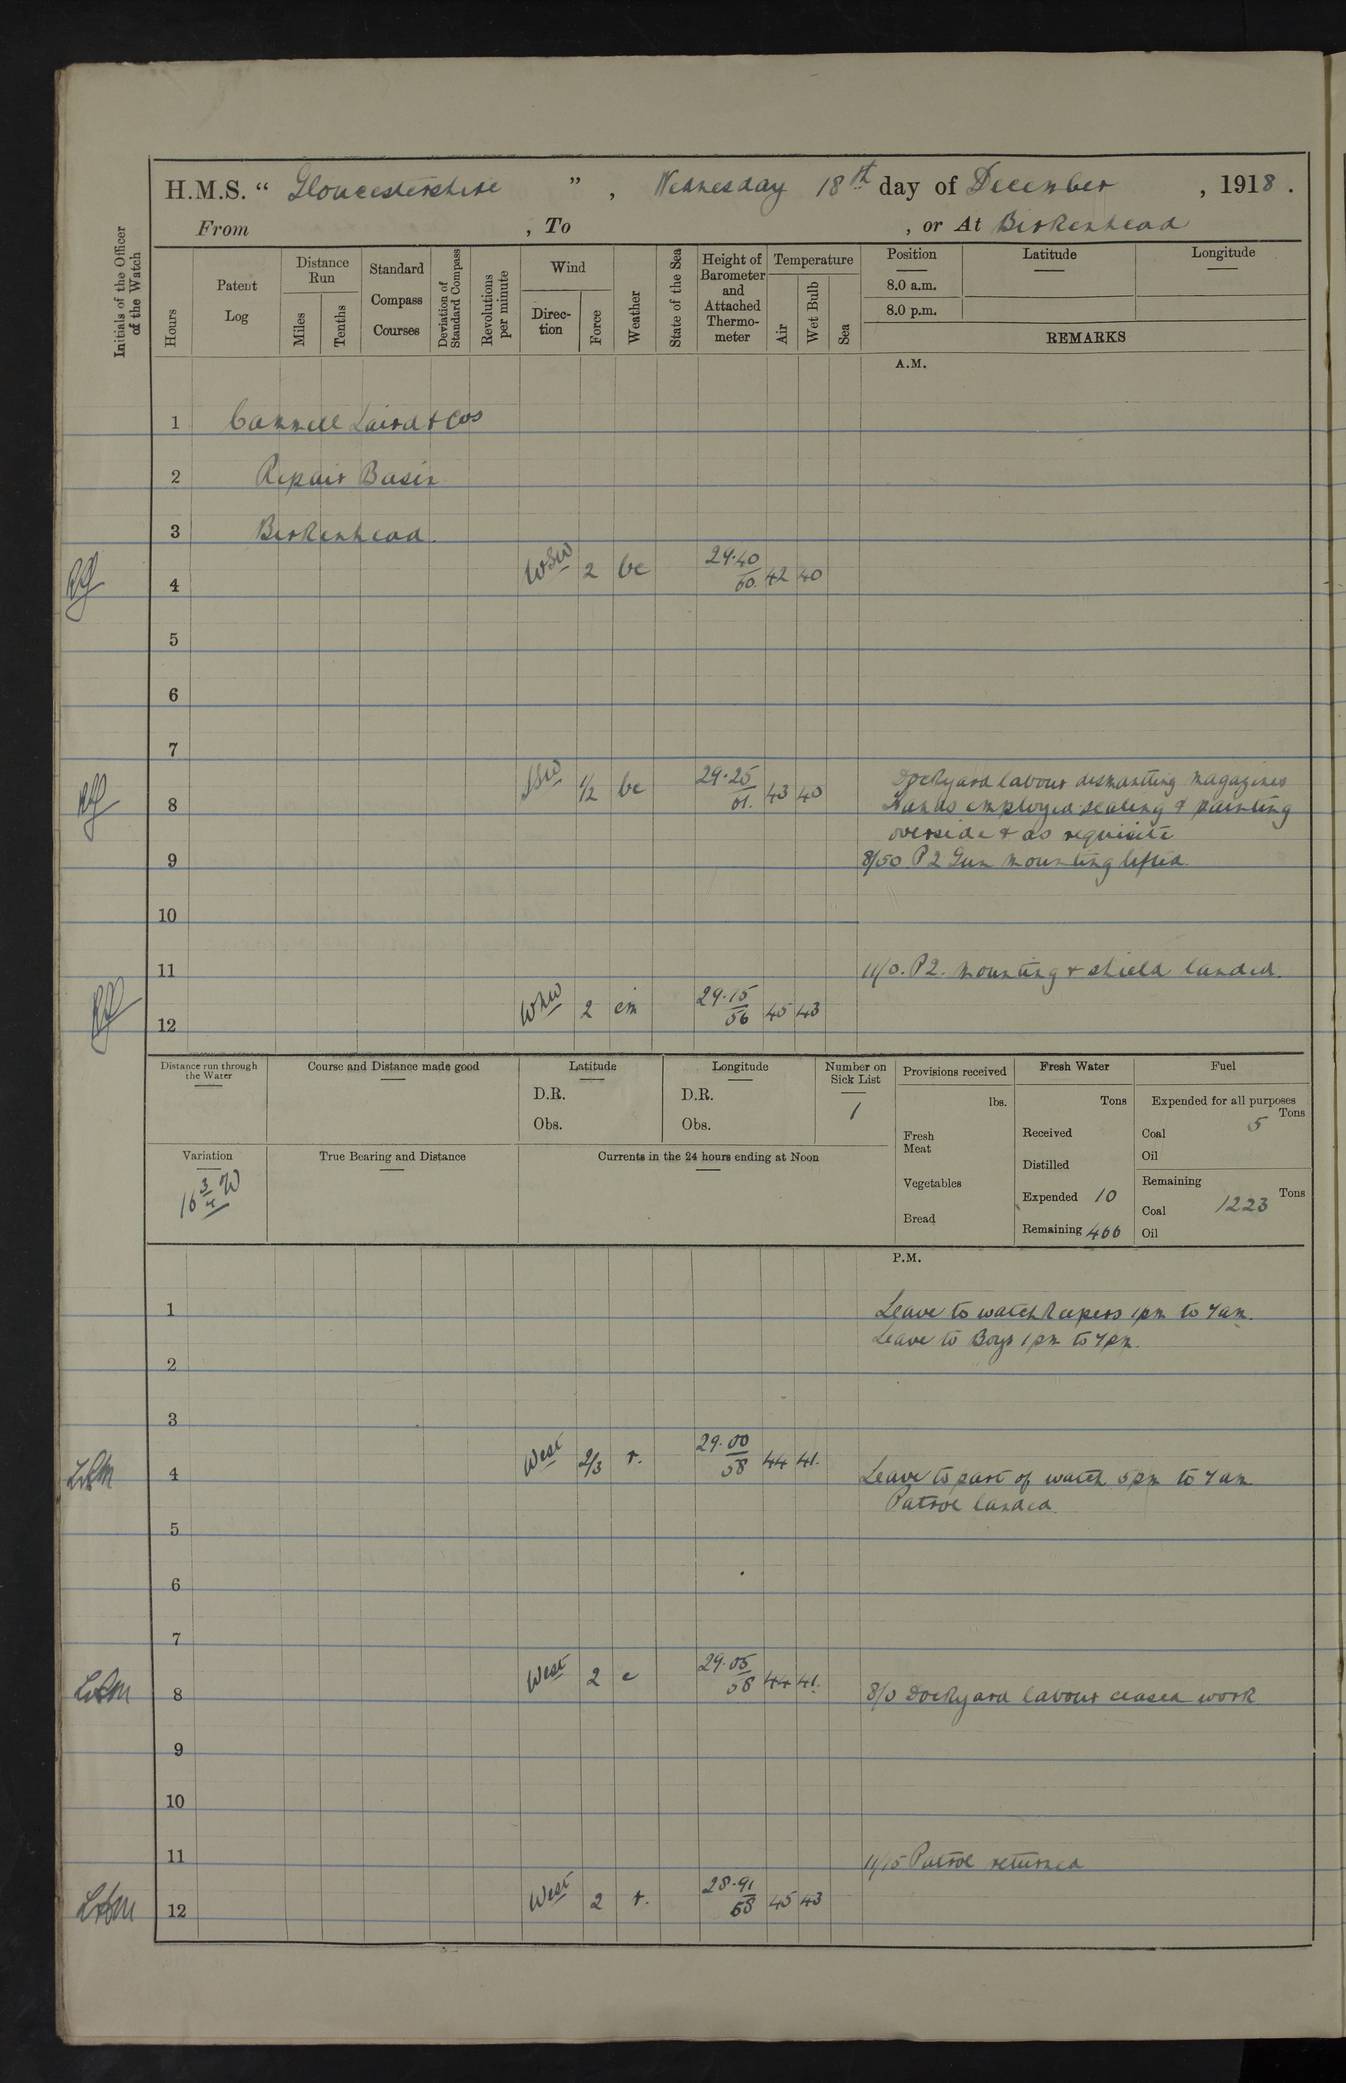 H.M.S. “ Gloucestershire ” , Wednesday 18th day of December , 1918 .
From , To , or At Birkenhead
Initials of the Officer of the Watch
Hours
Patent Log
Distance Run
Miles
Tenths
Standard Compass Courses
Deviation of Standard Compass
Revolutions per minute
Wind
Direc-tion
Force
Weather
State of the Sea
Height of Barometer and Attached Thermo-meter
Temperature
Air
Wet Bulb
Sea
Position Latitude Longitude
8.0 a.m.
8.0 p.m.
REMARKS
A.M.
1 Cammell Laird & Cos
2 Repair Basin
3 Birkenhead.
4 WSW 2 bc 29.40 60. 42 40
5
6
7
Dockyard labour dismantling magazines
8 SSW 1/2 bc 29.25 61. 43 40 Hands employed scaling & painting
overside & as requisite
9 8/50 P2 Gun mounting lifted.
10
11 11/0. P2. mounting & shield landed.
12 WNW 2 cm 29.15 56 45 43
Distance run through the Water
Course and Distance made good
Latitude
D.R.
Obs.
Longitude
D.R.
Obs.
Number on Sick List
1
Provisions received
lbs.
Fresh Meat
Vegetables
Bread
Fresh Water
Tons
Received
Distilled
Expended 10
Remaining 466
Fuel
Expended for all purposes
Tons
Coal 5
Oil
Remaining
Tons
Coal 1223
Oil
Variation
16 3/4 W
True Bearing and Distance
Currents in the 24 hours ending at Noon
P.M.
1 Leave to watchkeepers 1pm to 7am.
Leave to Boys 1pm to 7pm.
2
3
4 West 2/3 r. 29.00 58 44 41. Leave to part of watch 5pm to 7am
Patrol landed.
5
6
7
8 West 2 c 29.05 58 44 41. 8/0 Dockyard labour ceased work
9
10
11 11/15 Patrol returned
12 West 2 r. 28.91 58 45 43